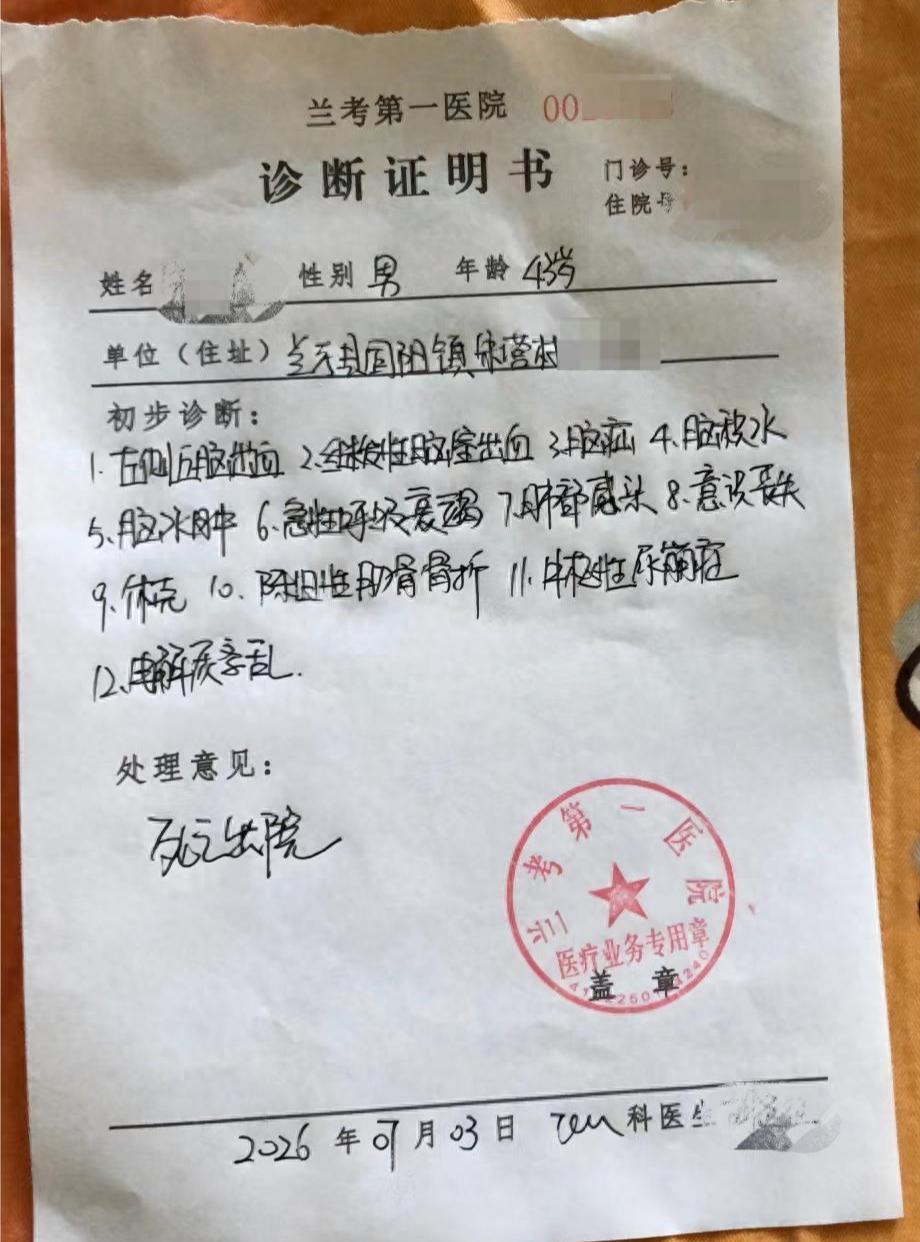 兰考第一医院 00
诊断证明书
门诊号：
住院号
姓名 性别 男 年龄 43岁
单位（住址）兰考县固阳镇宋营村
初步诊断：
1.右侧丘脑出血 2.继发性脑室出血 3.脑疝 4.脑积水
5.脑水肿 6.急性呼吸衰竭 7.肺部感染 8.意识丧失
9.休克 10.陈旧性肋骨骨折 11.中枢性尿崩症
12.电解质紊乱.
处理意见：
死亡出院
兰考第一医院
医疗业务专用章
盖 章
2026 年 07 月 03 日 ICU 科医生